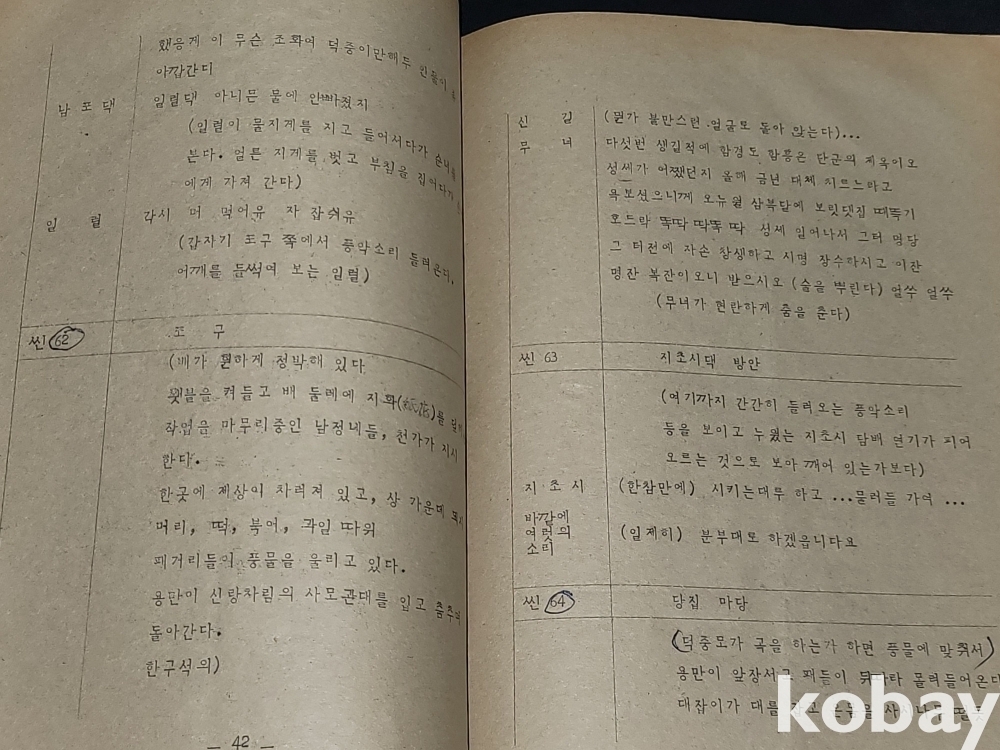 했응게 이 무슨 조화여 덕중이만해두 인물이
아깝간디
남포댁 일렬댁 아니믄 물에 안빠졌지
(일렬이 물지게를 지고 들어서다가 순녀를
본다. 얼른 지게를 벗고 부침을 집어다가
에게 가져 간다)
일렬 각시 머 먹어유 자 잡쉬유
(갑자기 포구 쪽에서 풍악소리 들려온다.
어깨를 들썩여 보는 일렬)
씬 62 포구
(배가 휜하게 정박해 있다
횃불을 켜들고 배 둘레에 지화(紙花)를
작업을 마무리중인 남정네들, 천가가 지시
한다.
한곳에 제상이 차려져 있고, 상 가운데
머리, 떡, 북어, 과일 따위
패거리들이 풍물을 울리고 있다.
용만이 신랑차림의 사모관대를 입고 춤추며
돌아간다.
한구석의)
- 42 -
신길 (뭔가 불만스런 얼굴로 돌아 앉는다)...
무녀 다섯번 생길적에 함경도 함흥은 단군의 제옥이오
성세가 어쨌던지 올해 금년 대체 지르느라고
욕보셨으니께 오뉴월 삼복달에 보릿댓집 때뚝기
호드락 뚝딱 딱뚝 딱 성세 일어나서 그터 명당
그 터전에 자손 창생하고 시명 장수하시고 이잔
명잔 복잔이오니 받으시오 (술을 뿌린다) 얼쑤 얼쑤
(무녀가 현란하게 춤을 춘다)
씬 63 지초시댁 방안
(여기까지 간간히 들려오는 풍악소리
등을 보이고 누웠는 지초시 담배 연기가 피어
오르는 것으로 보아 깨어 있는가보다)
지초시 (한참만에) 시키는대루 하고 ...물러들 가여 ...
바깥에
여럿의 (일제히) 분부대로 하겠읍니다요
소리
씬 64 당집 마당
(덕중모가 곡을 하는가 하면 풍물에 맞춰서)
용만이 앞장서고 패들이 뒤따라 몰려들어온다
대잡이가 대를
kobay